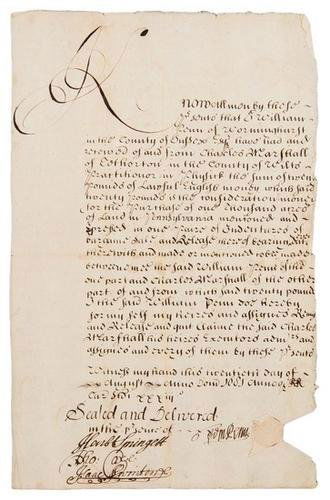 Know all men by these
p'sents that I William
Penn of Worminghurst
in the County of Sussex Esq have had and
receved of and from Charles Marshall
of in the County of Wilts
Practitioner in Physick the sum of twenty
Pounds of Lawful English money which said
twenty Pounds is the consideration money
for the Purchase of one thousand acres
of Land in Pennsylvania mentioned and
in one Paire of Indentures of
bargaine Sale and Release bearing date
therewith and made or mentioned to be made
betweene mee the said William Penn of the
one part and Charles Marshall of the other
part of and from which said twenty pound
I the said William Penn doe hereby
for my self my heires and assignes
and Release and quit claime the said Charles
Marshall his heires Executors adm and
assignes and every of them by these p'sents
Witness my hand this twentieth day of
August Anno Dom 1681 Annoq RR
Car Sdi xxxiij
Sealed and Delivered
in the p'sence of
Wm Penn
Harb Springett
Tho Coxe
Isaac